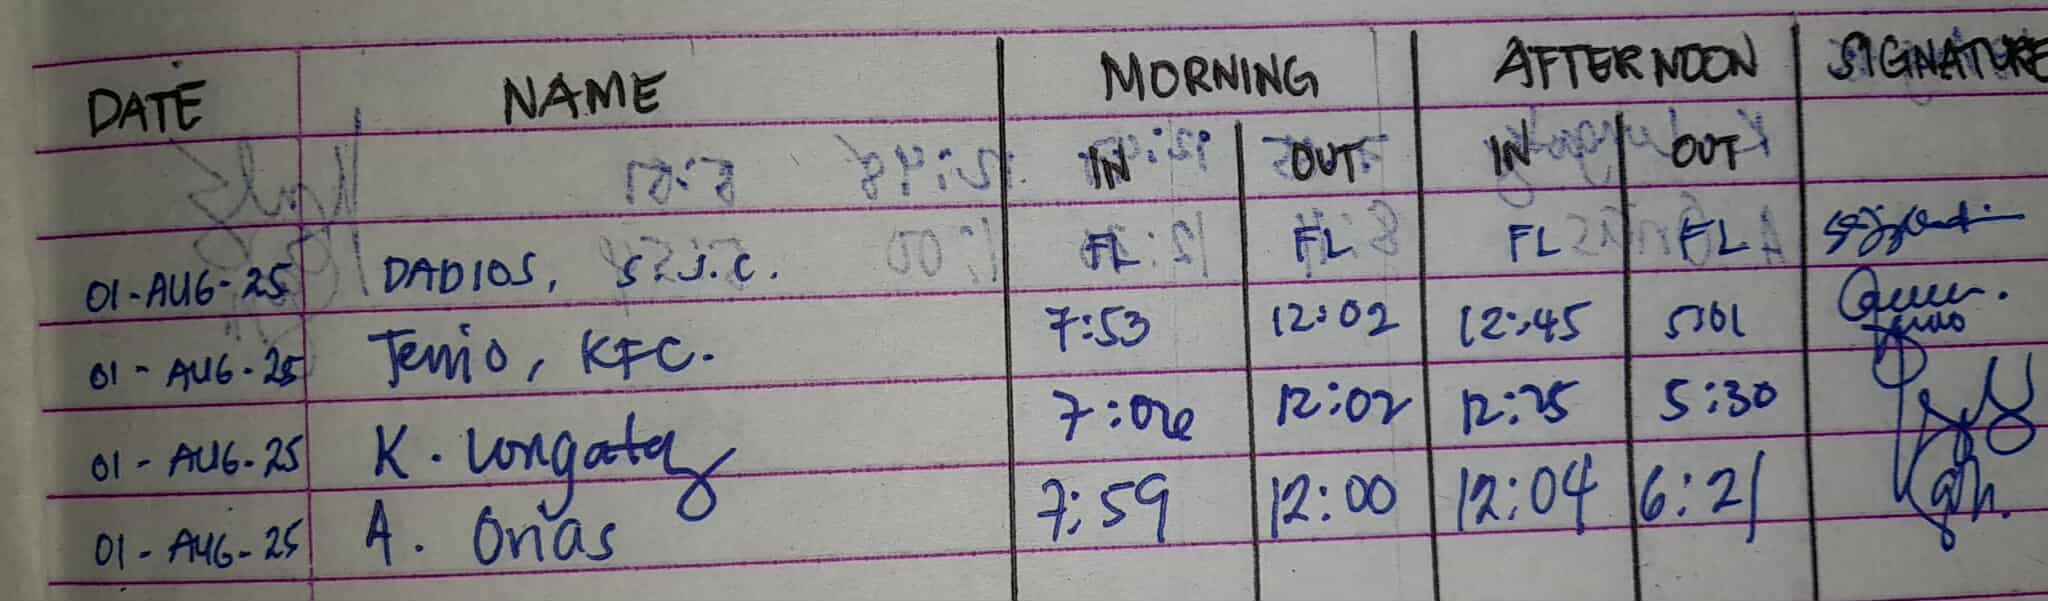 DATE NAME MORNING AFTERNOON SIGNATURE
IN OUT IN OUT
01-AUG-25 DADIOS, S.J.C. FL FL FL FL
01-AUG-25 Tenio, KFC. 7:53 12:02 12:45 5:01
01-AUG-25 K. 12:02 12:25 5:30
01-AUG-25 A. Orias 7:59 12:00 12:04 6:21